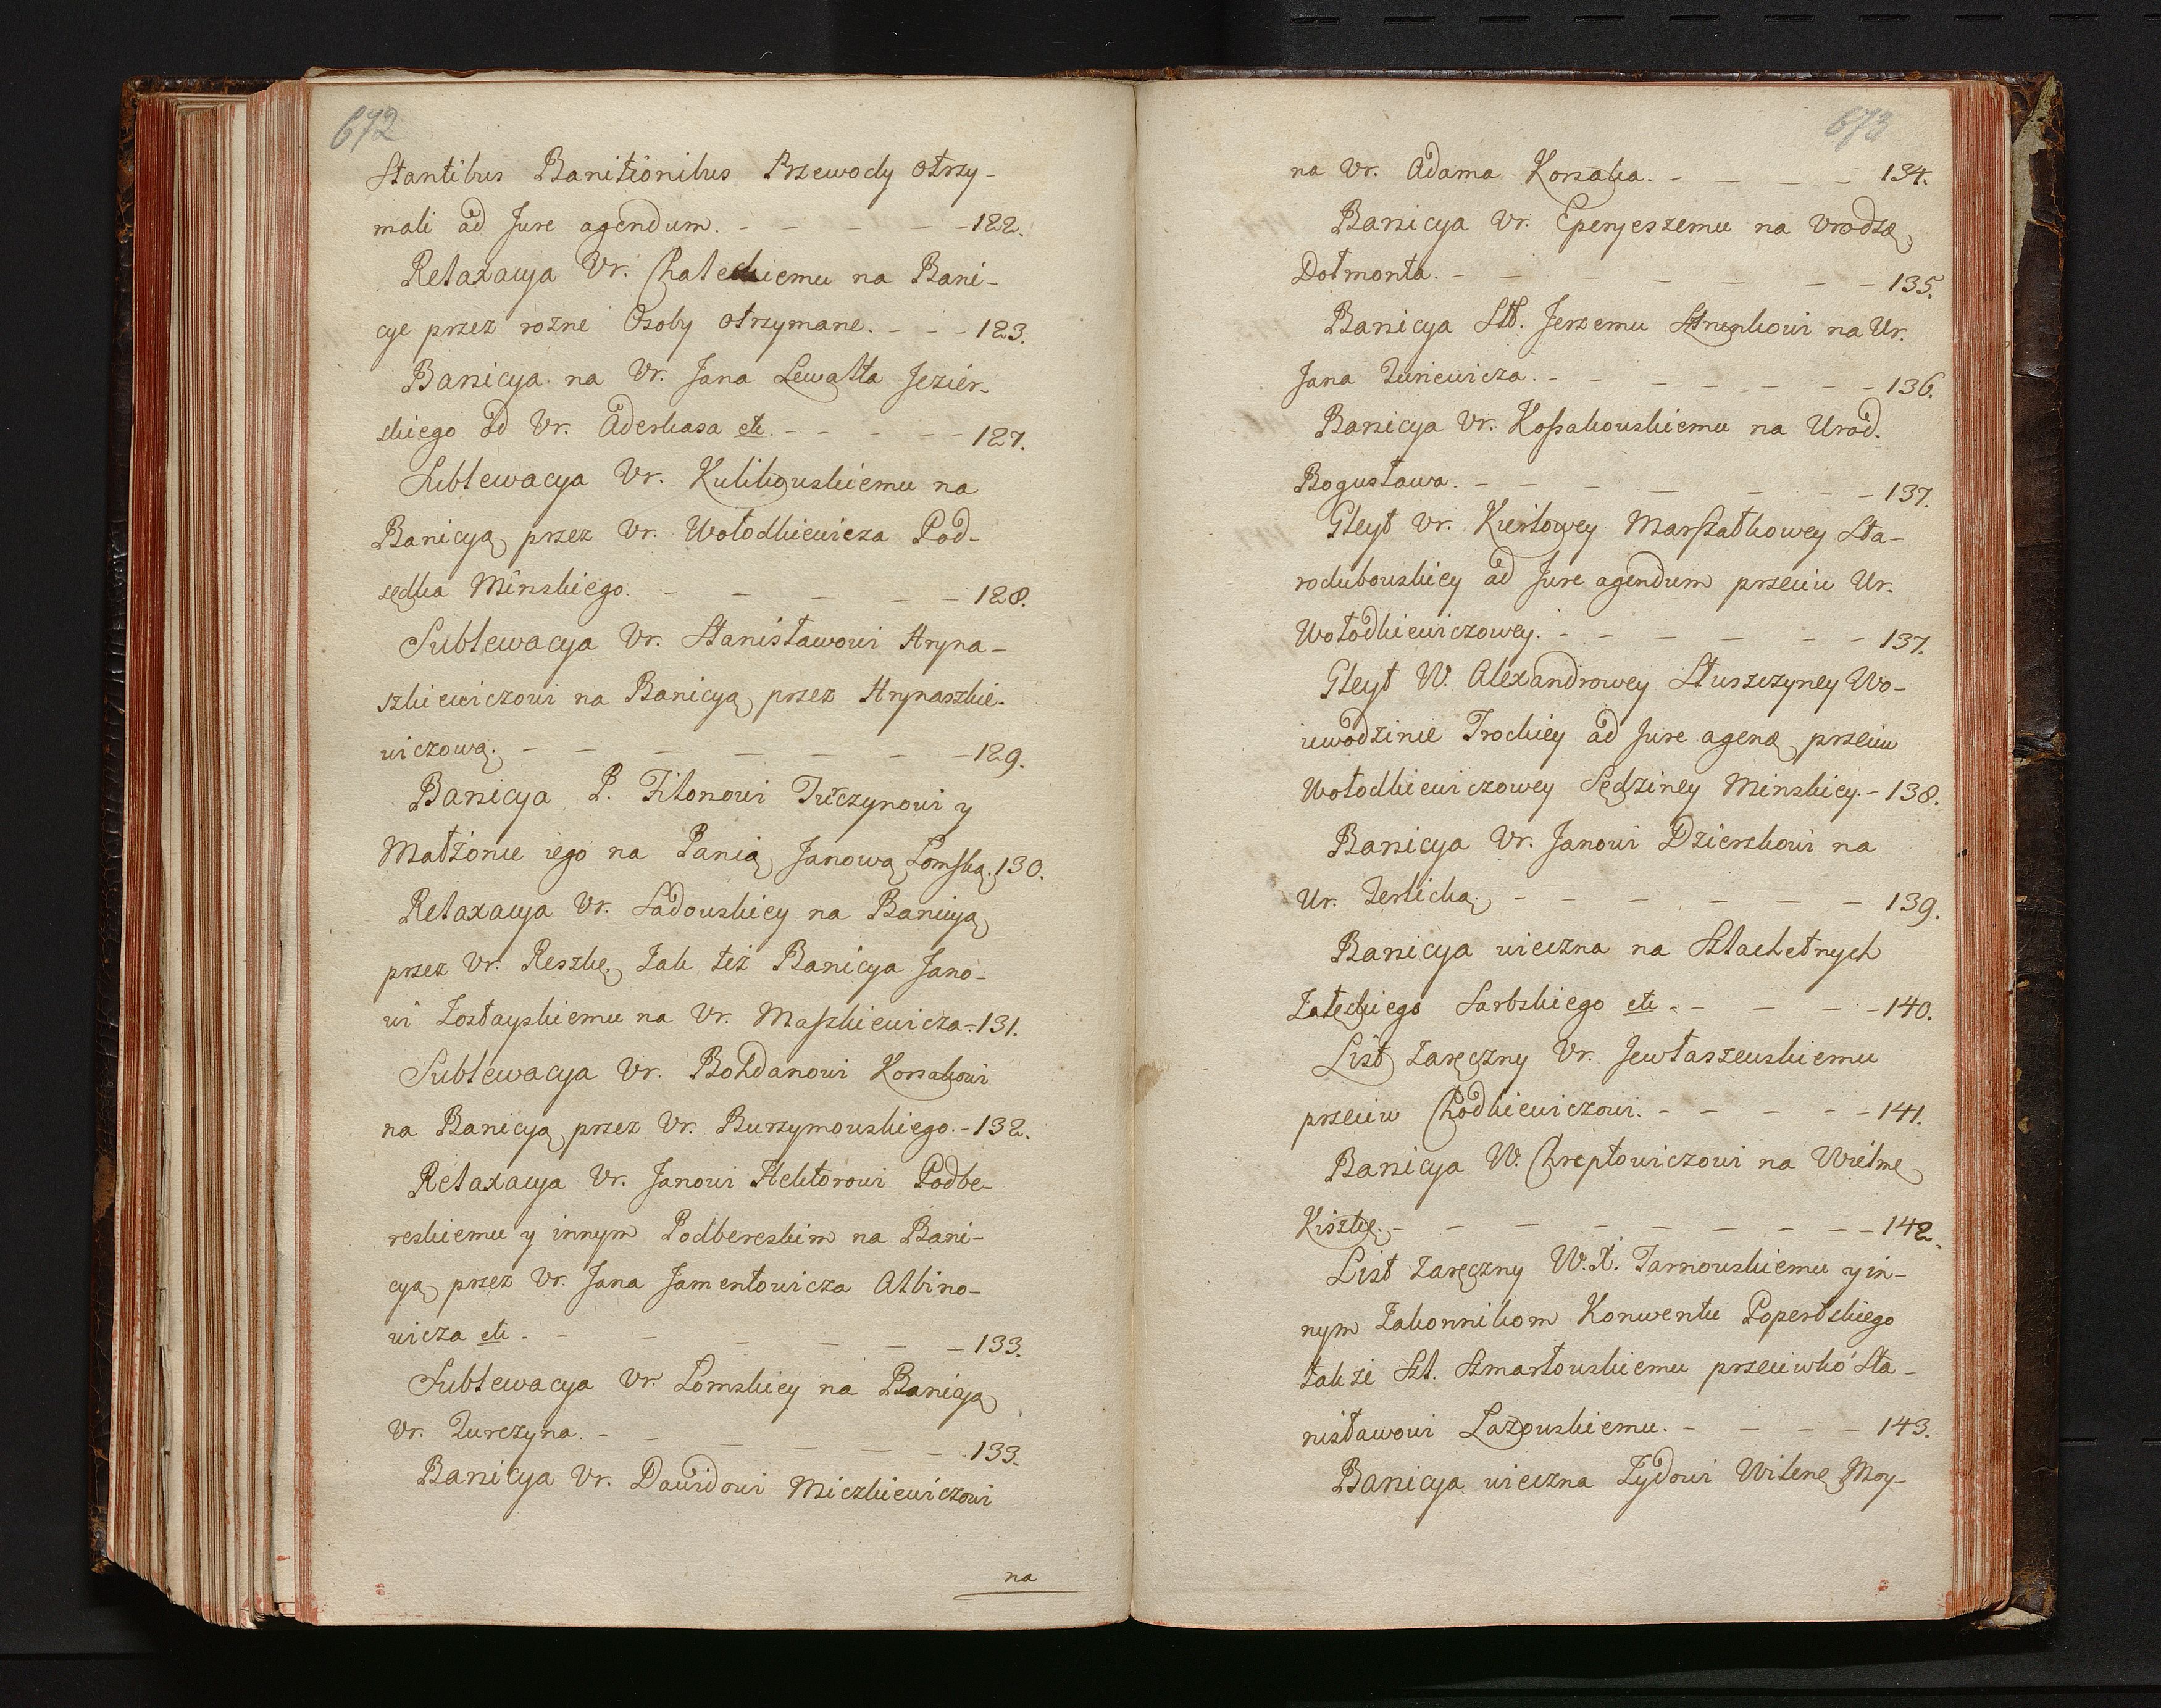 672
Stantibus Banitionibus Przewody otrzy-
mali ad Jure agendum. - - - - - 122.
Relaxacya Ur. Chaleckiemu na Bani-
cye przez rozne Osoby otrzymane. - - - 123.
Banicya na Ur. Jana Lewalta Jezier-
skiego od Ur. Aderkasa etc. - - - - - 127.
Sublewacya Ur. Kulikowskiemu na
Banicyą przez Ur. Wołodkiewicza Pod-
sędka Minskiego. - - - - - 128.
Sublewacya Ur. Stanisławowi Hryna-
szkiewiczowi na Banicyą przez Hrynaszkie-
wiczową. - - - - - - - 129.
Banicya P. Filonowi Turczynowi y
Małżonce iego na Panią Janową Łomską. 130.
Relaxacya Ur. Sadowskiey na Banicyą
przez Ur. Reszkę, Jak też Banicya Jano-
wi Zostayskiemu na Ur. Maszkiewicza. - 131.
Sublewacya Ur. Bohdanowi Korsakowi
na Banicyą przez Ur. Burzymowskiego. - 132.
Relaxacya Ur. Janowi Hektorowi Podbe-
reskiemu y innym Podbereskim na Bani-
cyą przez Ur. Jana Jamentowicza Albino-
wicza etc. - - - - - - 133.
Sublewacya Ur. Łomskiey na Banicyą
Ur. Turczyna. - - - - - - - 133.
Banicya Ur. Dawidowi Miczkiewiczowi
na
673
na Ur. Adama Korsaka. - - - - 134.
Banicya Ur. Eperjeszemu na Urodze
Dołmonta. - - - - - - - 135.
Banicya Sld. Jerzemu Strunkowi na Ur.
Jana Zuniewicza. - - - - - - - 136.
Banicya Ur. Kossakowskiemu na Urod.
Bogusława. - - - - - - - 137.
Gleyt Ur. Kierłowey Marszałkowey Sta-
rodubowskiey ad Jure agendum przeciw Ur.
Wołodkiewiczowey. - - - - - - 137.
Gleyt W. Alexandrowey Słuszczyney Wo-
iewodzinie Trockiey ad Jure agend przeciw
Wołodkiewiczowey Sędziney Minskiey. - 138.
Banicya Ur. Janowi Dzierzkowi na
Ur. Jerlicha. - - - - - - 139.
Banicya wieczna na Szlachetnych
Zaleskiego Sarbskiego etc. - - - - 140.
List zaręczny Ur. Jewłaszewskiemu
przeciw Chodkiewiczowi. - - - - - 141.
Banicya W. Chreptowiczowi na Wielmę
Kiszkę. - - - - - - - - 142.
List zaręczny W. X. Tarnowskiemu y in-
nym Zakonnikom Konwentu Poperskiego
także Szl. Szmartowskiemu przeciwko Sta-
nisławowi Łazowskiemu. - - - - 143.
Banicya wieczna Zydowi Wilenę Moy-